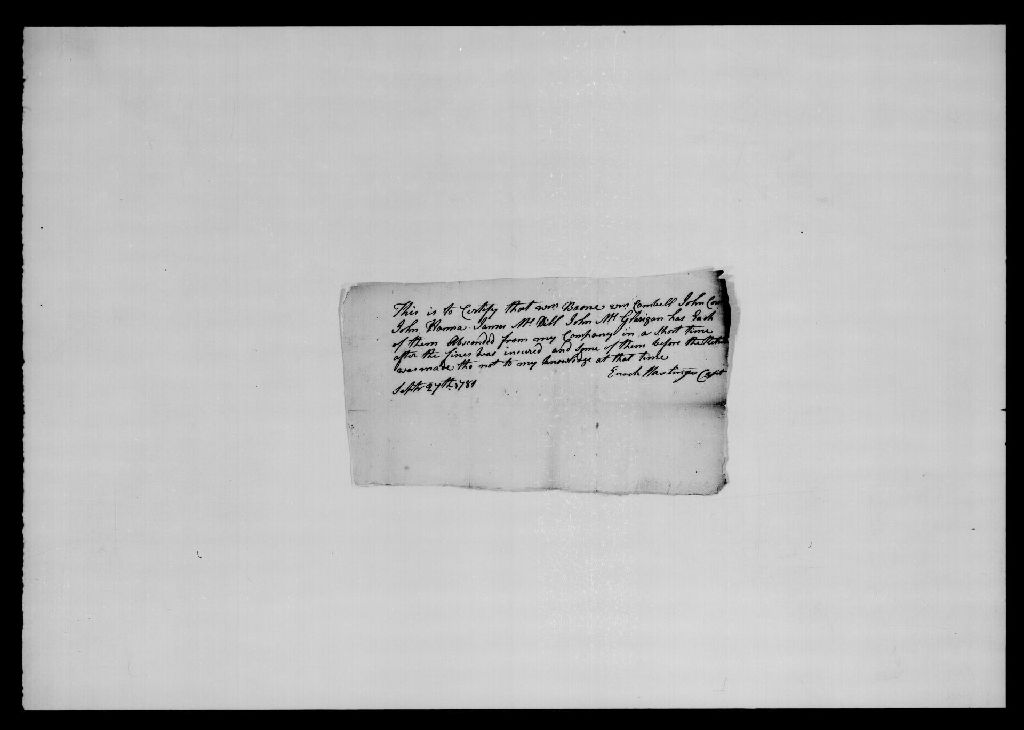 This is to Certify that wm Boone wm Cambell John
John Hanna James Mc Dill John Mc Glaigan has Each
of them Absconded from my Company in a short time
after the fines was incured and some of them before the
was made tho not to my knowledge at that time
Enoch Hastings Capt
Septr 27th 1781